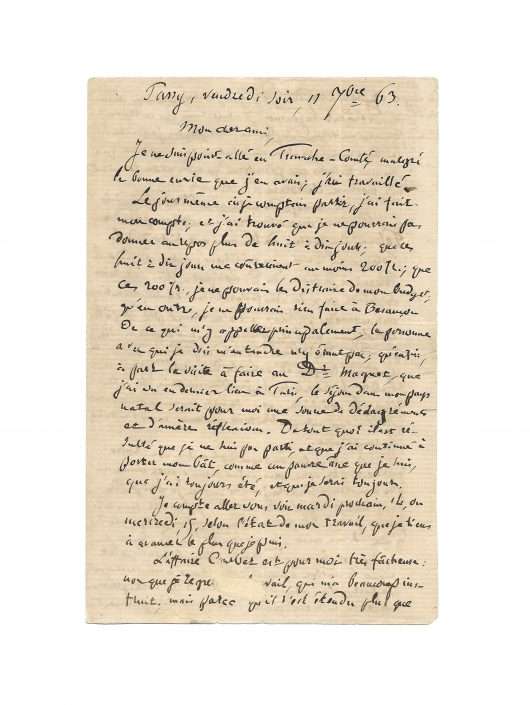 Passy, vendredi soir, 11 7bre 63.
Mon cher ami,
Je ne suis point allé en Franche-Comté, malgré
la bonne envie que j'en avais; j'ai travaillé.
Le jour même où je comptais partir, j'ai fait
mon compte; et j'ai trouvé que je ne pourrais pas
donner au repos plus de huit à dix jours; que ces
huit à dix jours me coûteraient au moins 200 fr.; que
ces 200 fr. je ne pouvais les distraire de mon budget;
qu'en outre, je ne pourrais rien faire à Besançon
De ce qui m'y appelle principalement, la personne
avec qui je dois m'entendre n'y étant pas; qu'enfin,
à part la visite à faire au Dr Maguet, que
j'ai vu en dernier lieu à Paris, le séjour dans mon pays
natal serait pour moi une source de désagréments
et d'amères réflexions. De tout quoi il est ré-
sulté que je ne suis pas parti, et que j'ai continué à
porter mon bât, comme un pauvre âne que je suis,
que j'ai toujours été, et que je serai toujours.
Je compte aller vous voir mardi prochain, ou
mercredi, selon l'état de mon travail, que je tiens
à avancer le plus que je puis.
L'affaire Courbet est pour moi très fâcheuse:
non que je regre vail, qui m'a beaucoup ins-
truit, mais parce qu'il s'est étendu plus que